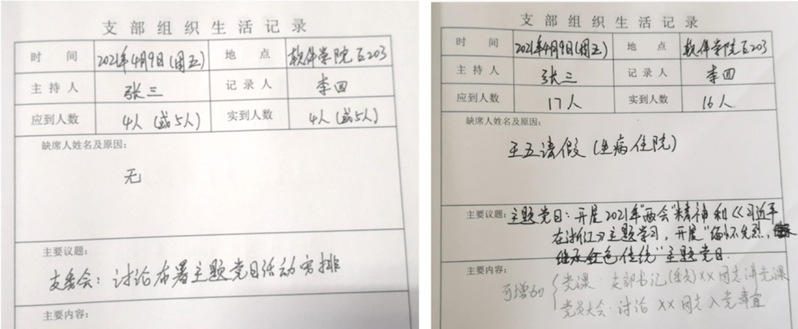 支部组织生活记录
时 间 2021年4月9日(周五) 地 点 软件学院B203
主 持 人 张三 记 录 人 李四
应到人数 4人(或5人) 实到人数 4人(或5人)
缺席人姓名及原因:
无
主要议题:
支委会: 讨论布署主题党日活动安排
主要内容:
支部组织生活记录
时 间 2021年4月9日(周五) 地 点 软件学院B203
主 持 人 张三 记 录 人 李四
应到人数 17人 实到人数 16人
缺席人姓名及原因:
王五请假(生病住院)
主要议题: 主题党日: 开展2021年"两会"精神和《习近平
在浙江》主题学习, 开展"缅怀先烈,
继承红色传统"主题党日
主要内容:
可增加 党课: 支部书记(委员)XX同志讲党课
党员大会: 讨论XX同志入党事宜